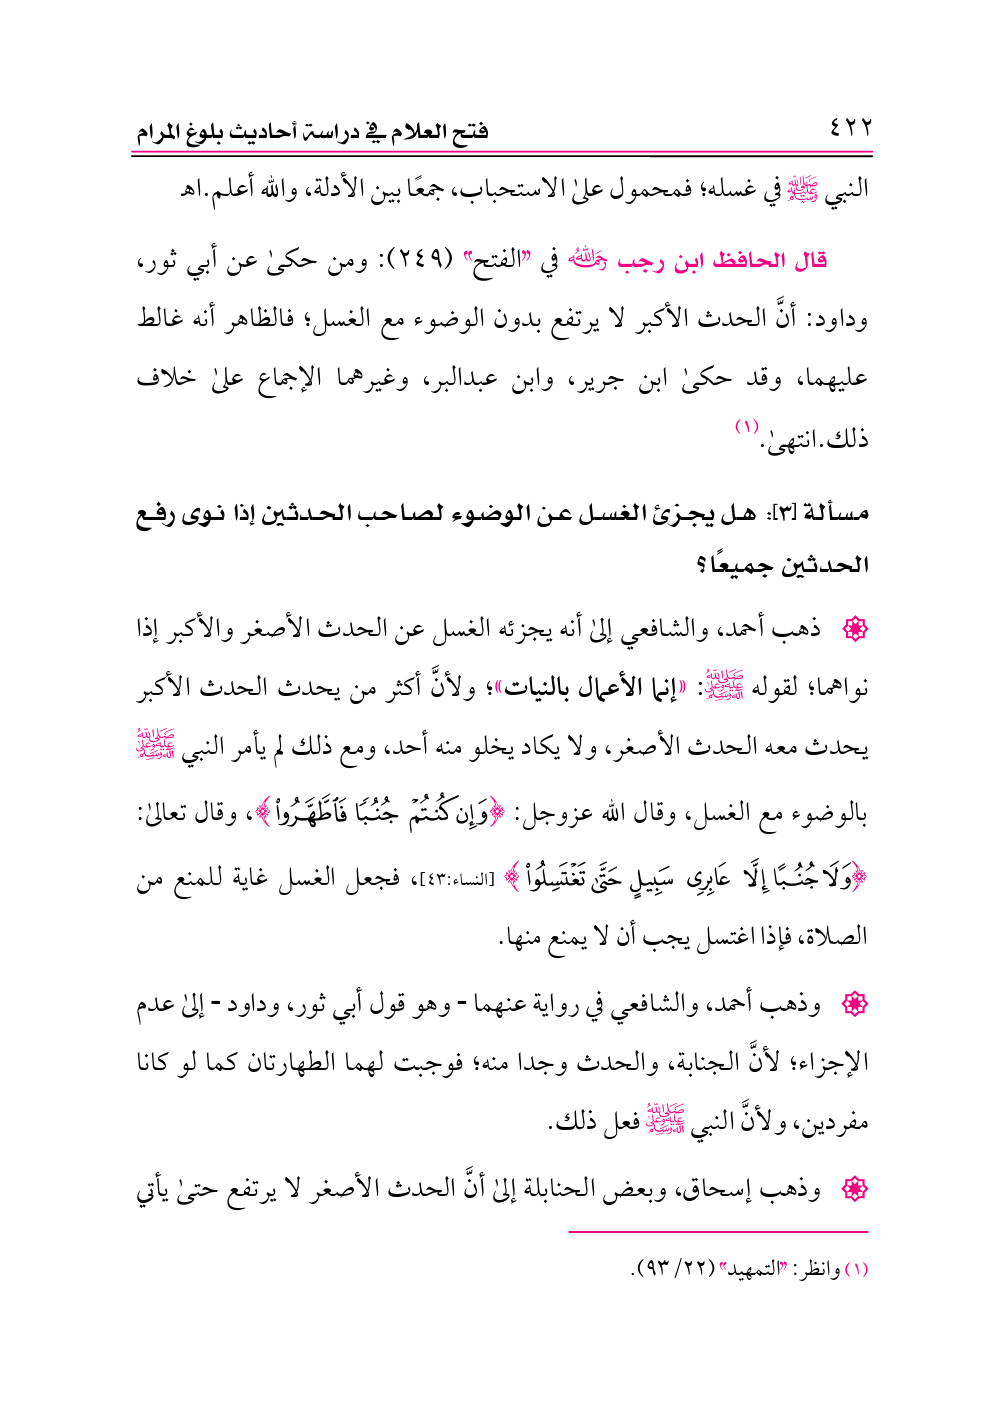 ٤٢٢ فتح العلام في دراسة أحاديث بلوغ المرام
النبي ﷺ في غسله؛ فمحمول علىٰ الاستحباب، جمعًا بين الأدلة، والله أعلم.اهـ
قال الحافظ ابن رجب رحمه الله في "الفتح" (٢٤٩): ومن حكىٰ عن أبي ثور،
وداود: أنَّ الحدث الأكبر لا يرتفع بدون الوضوء مع الغسل؛ فالظاهر أنه غالط
عليهما، وقد حكىٰ ابن جرير، وابن عبدالبر، وغيرهما الإجماع علىٰ خلاف
ذلك.انتهىٰ.(١)
مسألة [٣]: هل يجزئ الغسل عن الوضوء لصاحب الحدثين إذا نوى رفع
الحدثين جميعًا؟
ذهب أحمد، والشافعي إلىٰ أنه يجزئه الغسل عن الحدث الأصغر والأكبر إذا
نواهما؛ لقوله ﷺ: «إنما الأعمال بالنيات»؛ ولأنَّ أكثر من يحدث الحدث الأكبر
يحدث معه الحدث الأصغر، ولا يكاد يخلو منه أحد، ومع ذلك لم يأمر النبي ﷺ
بالوضوء مع الغسل، وقال الله عزوجل: ﴿وَإِن كُنتُمۡ جُنُبٗا فَٱطَّهَّرُواْ﴾، وقال تعالىٰ:
﴿وَلَا جُنُبًا إِلَّا عَابِرِي سَبِيلٍ حَتَّىٰ تَغۡتَسِلُواْ﴾ [النساء:٤٣]، فجعل الغسل غاية للمنع من
الصلاة، فإذا اغتسل يجب أن لا يمنع منها.
وذهب أحمد، والشافعي في رواية عنهما - وهو قول أبي ثور، وداود - إلىٰ عدم
الإجزاء؛ لأنَّ الجنابة، والحدث وجدا منه؛ فوجبت لهما الطهارتان كما لو كانا
مفردين، ولأنَّ النبي ﷺ فعل ذلك.
وذهب إسحاق، وبعض الحنابلة إلىٰ أنَّ الحدث الأصغر لا يرتفع حتىٰ يأتي
(١) وانظر: "التمهيد" (٢٢/ ٩٣).